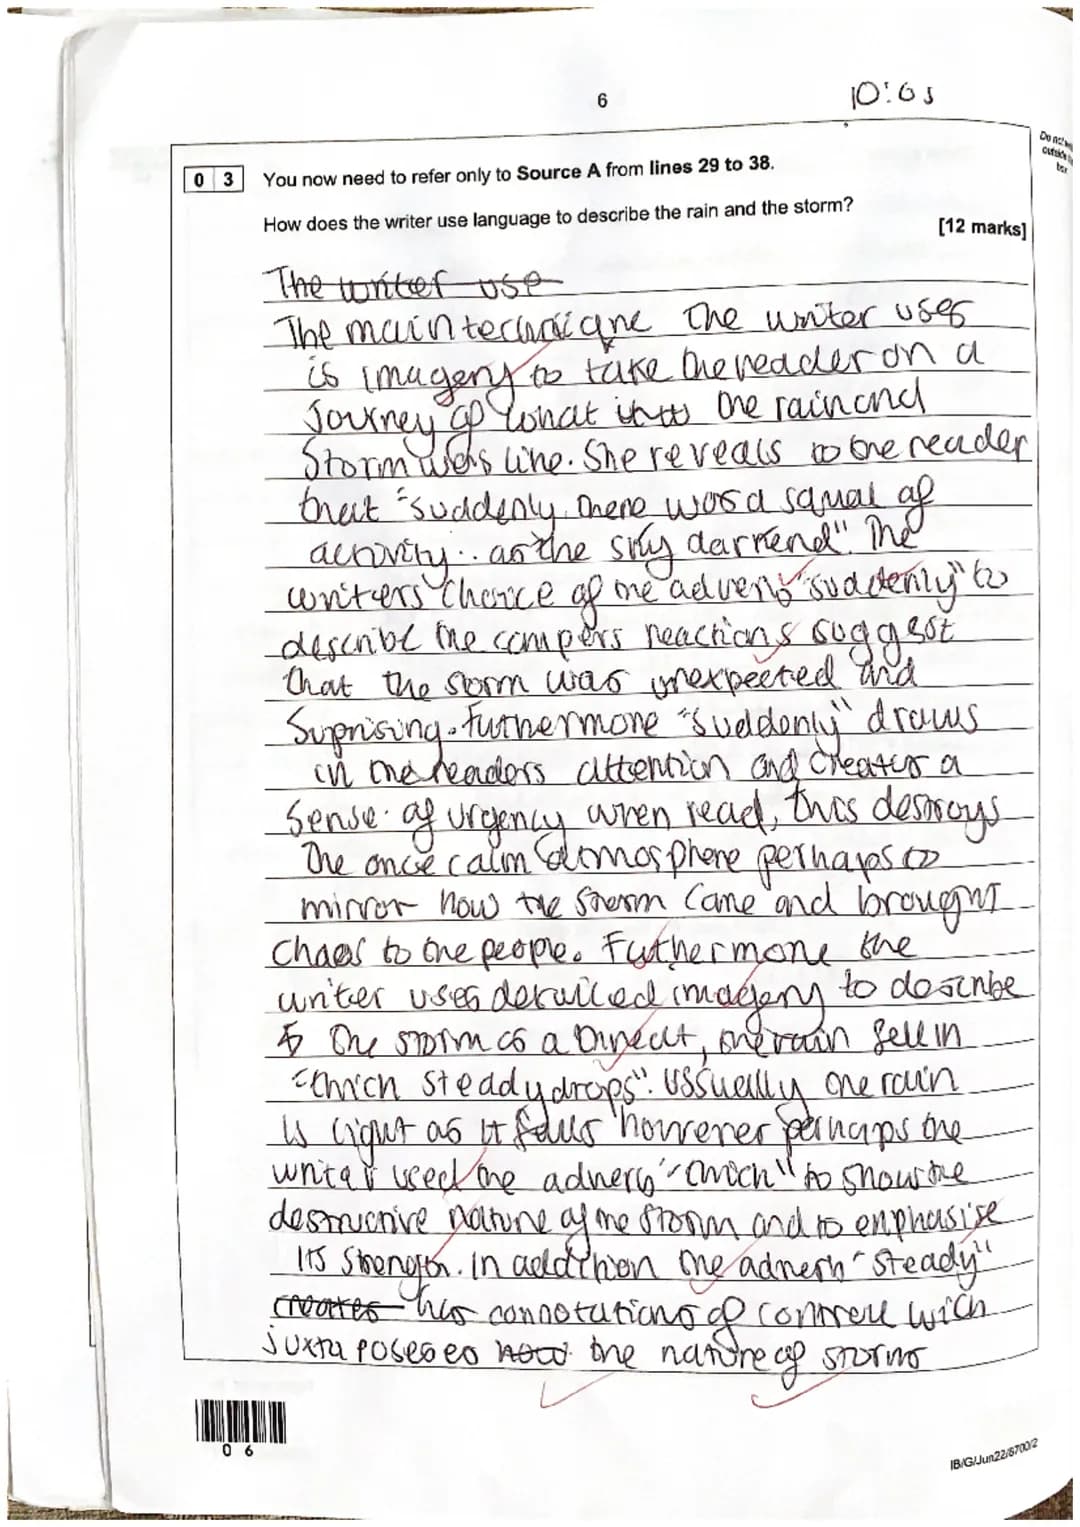 6
10:05
Do not w
outside t
box
0 3 You now need to refer only to Source A from lines 29 to 38.
How does the writer use language to describe the rain and the storm?
[12 marks]
The writer use
The main technique the writer uses
is imagery to take the reader on a
journey of what the rain and
Storm was like. She reveals to the reader
that "suddenly there was a squal of
activity.. as the sky darkened". The
writers choice of the adverb "suddenly" to
describe the campers reactions suggest
that the storm was unexpected and
Suprising. Futhermore "Suddenly" draws
in the readers attention and creates a
Sense of urgency when read, this destroys
The once calm atmosphere perhaps to
mirror how the storm came and brought
chaos to the people. Futhermore the
writer uses detailed imagery to describe
the storm as a threat, the rain fell in
"thick steady drops". Ussually the rain
is light as it falls however perhaps the
writer used the adverb "thick" to show the
destructive nature of the storm and to enphasise
its Strength. In addition the adverb "Steady"
creates has connotations of controll wich
juxtaposeses how the nature of storms
0 6
IB/G/Jun22/8700/2